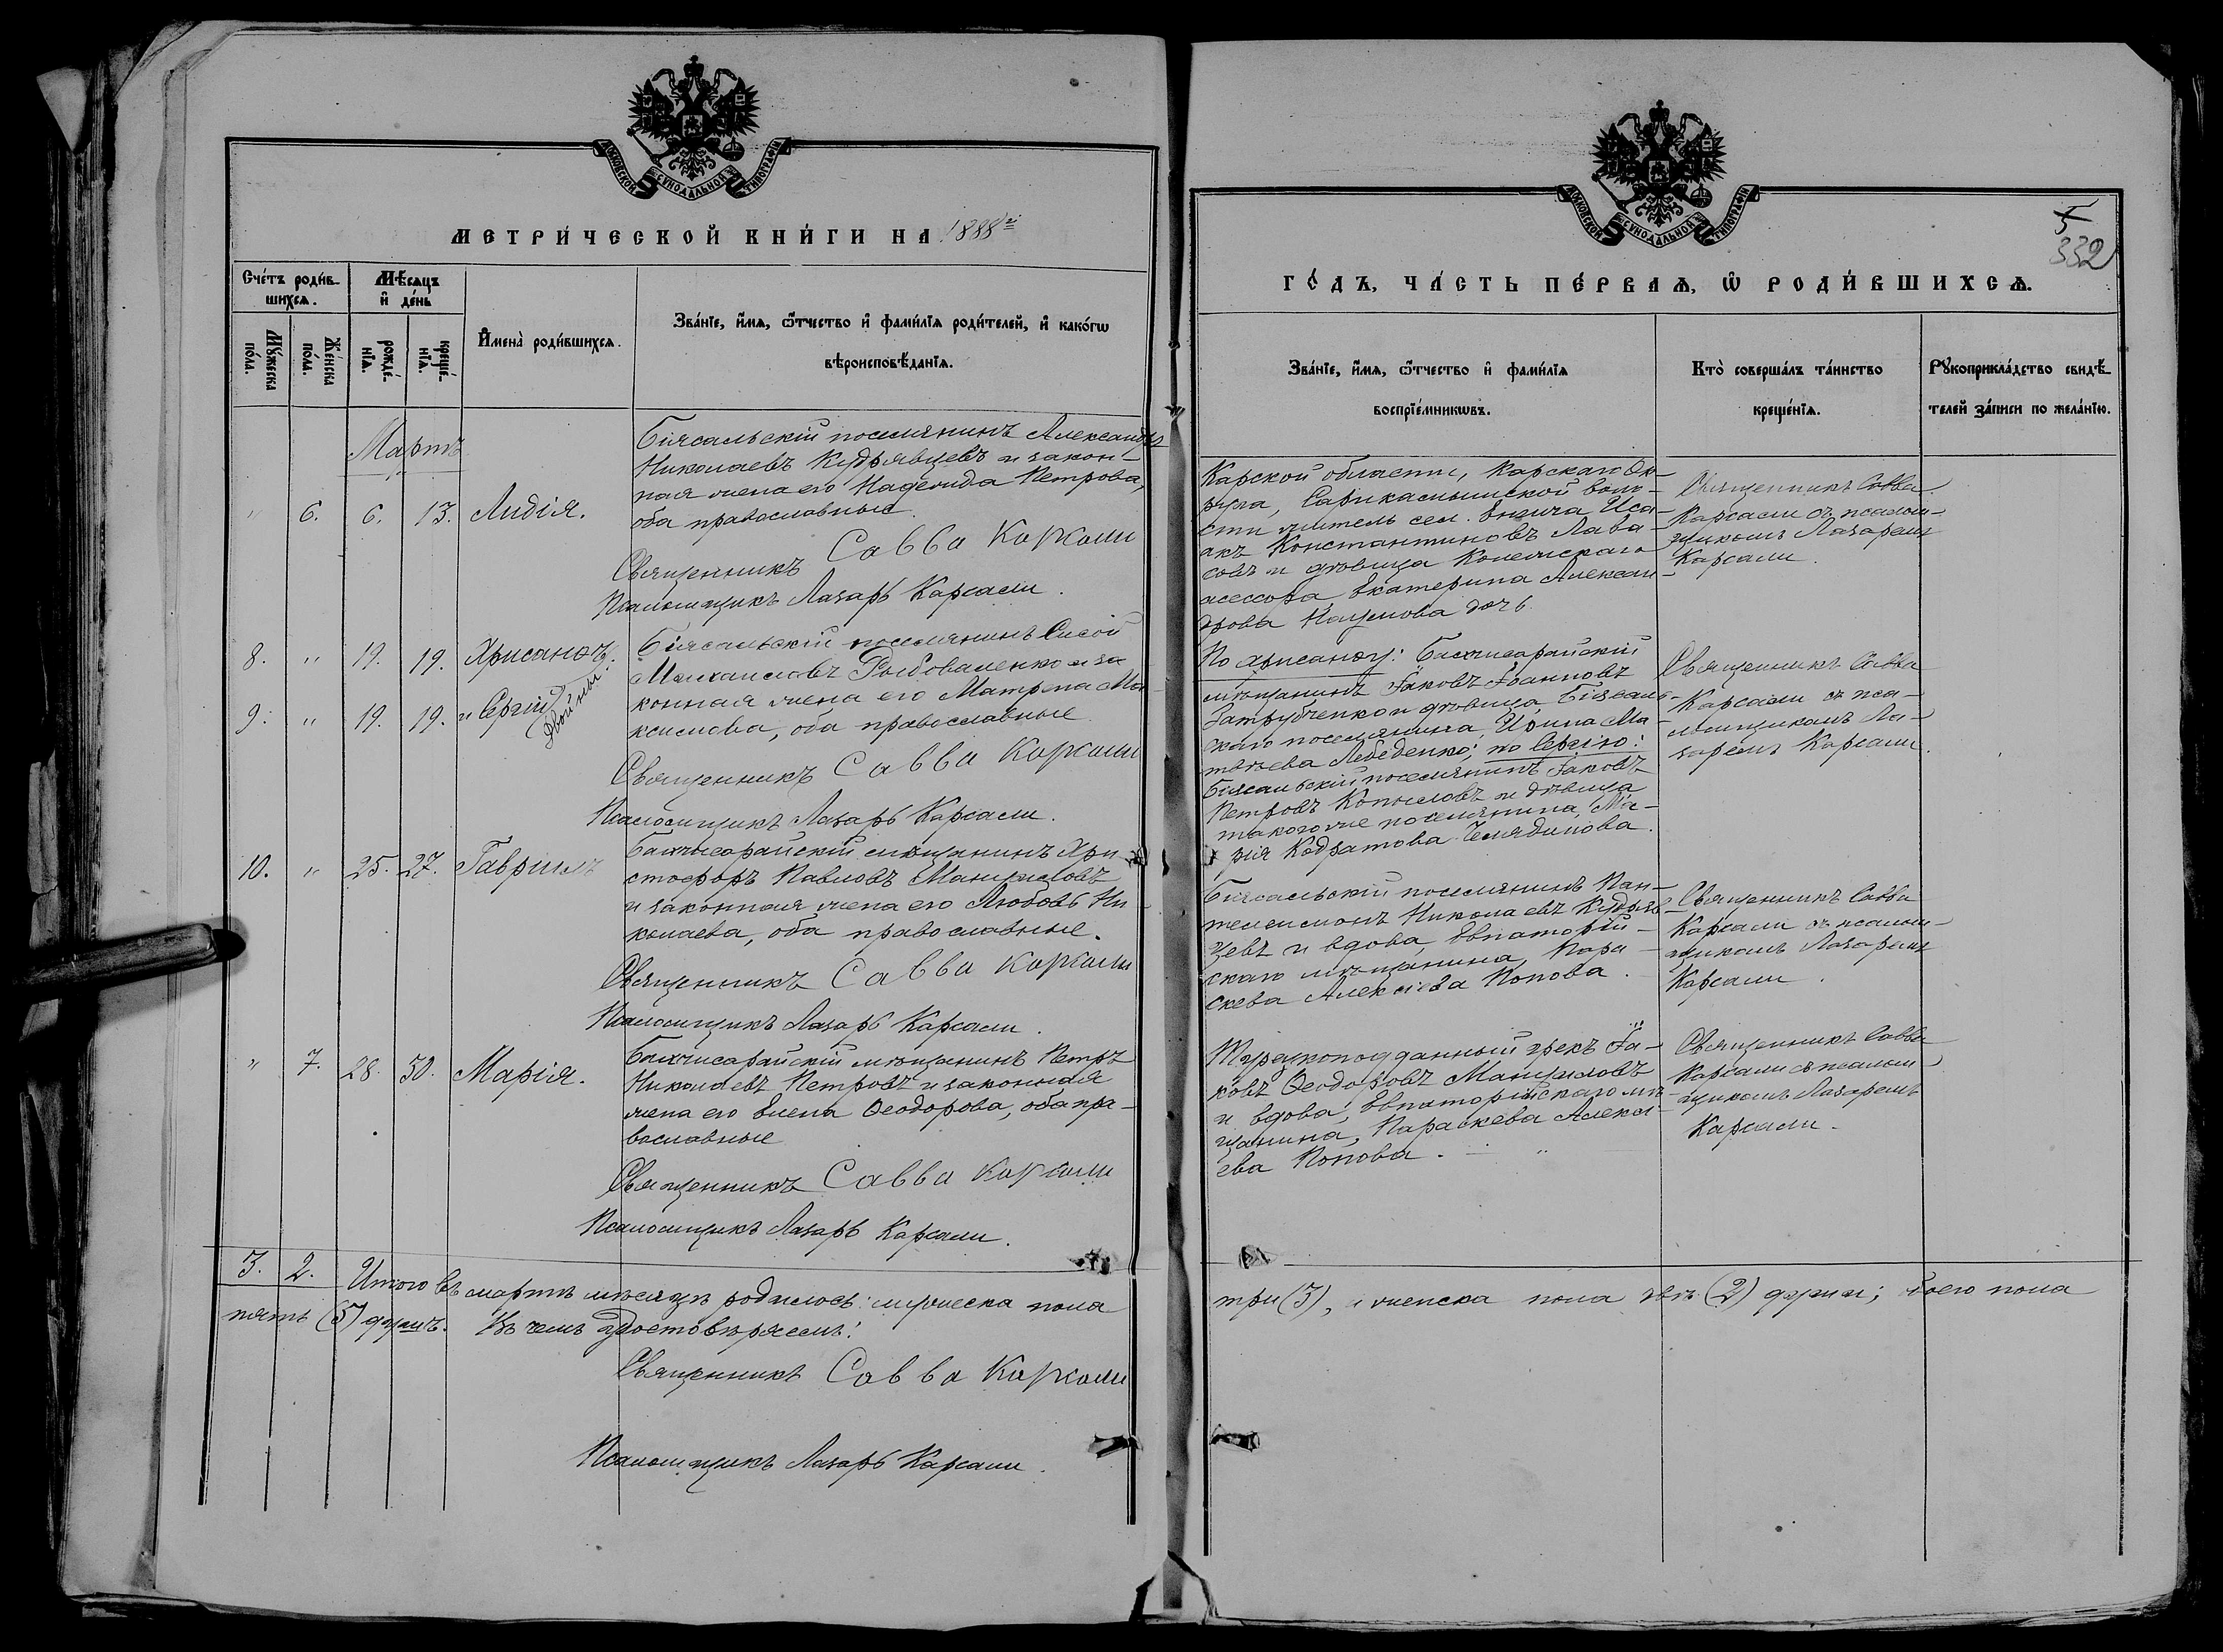 МОСКОВСКОЙ СѴНОДАЛЬНОЙ ТИПОГРАФІИ
МЕТРИ́ЧЕСКОЙ КНИ́ГИ НА 1888й
Сче́тъ роди́в-
шихсѧ.
Мѣ́сѧцъ
и҆ де́нь
Мꙋ́жеска
по́ла.
Же́нска
по́ла.
рожде́-
нїѧ.
креще́-
нїѧ.
И҆мена̀ роди́вшихсѧ.
Зва́нїе, и҆́мѧ, ѻ҆́тчество и҆ фами́лїѧ роди́телей, и҆ како́гѡ
вѣроисповѣ́данїѧ.
Мартъ
" 6. 6. 13. Лидія.
Біясальскій поселянинъ Александръ
Николаевъ Кудрявцевъ и закон-
ная жена его Надежда Петрова,
оба православные
Священникъ Савва Карсали
Псаломщикъ Лазарь Карсали.
8. " 19. 19. Хрисанѳъ
9. " 19. 19. и Сергій
(двойни).
Біясальскій поселянинъ Сисой
Михаиловъ Рыбоваленко и за
конная жена его Матрена Ма-
ксимова, оба православные
Священникъ Савва Карсали
Псаломщикъ Лазарь Карсали.
10. " 25. 27. Гавріилъ
Бахчисарайскій мѣщанинъ Хри
стофоръ Павловъ Мануиловъ
и законная жена его Любовь Ни
колаева, оба православные.
Священникъ Савва Карсали
Псаломщикъ Лазарь Карсали.
" 7. 28. 30. Марія.
Бахчисарайскій мѣщанинъ Петръ
Николаевъ Петровъ и законная
жена его Елена Ѳеодорова, оба пра-
вославные
Священникъ Савва Карсали
Псаломщикъ Лазарь Карсали.
3. 2. Итого въ мартѣ мѣсяцѣ родилось: мужеска пола
пять (5) душъ. Въ чемъ удостовѣряемъ:
Священникъ Савва Карсали
Псаломщикъ Лазарь Карсали.
МОСКОВСКОЙ СѴНОДАЛЬНОЙ ТИПОГРАФІИ
5
332
ГО́ДЪ, ЧА́СТЬ ПЕ́РВАѦ, Ѡ҆ РОДИ́ВШИХСѦ.
Зва́нїе, и҆́мѧ, ѻ҆́тчество и҆ фами́лїѧ
воспрїе́мникѡвъ.
Кто̀ соверша́лъ та́инство
креще́нїѧ.
Рꙋкоприкла́дство свидѣ́-
телей за́писи по жела́нїю.
Карской области, Карскаго Ок-
руга, Сарикамышской воло-
сти житель сел. Иса-
акъ Константиновъ Лава-
совъ и дѣвица Колежскаго
асессора Екатерина Алексан-
дрова Наумова дочь
Священникъ Савва
Карсали съ псалом-
щикомъ Лазаремъ
Карсали.
По Хрисанѳу: Бахчисарайскій
мѣщанинъ Іаковъ Іоанновъ
Затрубченко и дѣвица, Біясаль-
скаго поселянина, Ирина Ма-
твѣева Лебеденко; по Сергію:
Біясальскій поселянинъ Іаковъ
Петровъ Копыловъ и дѣвица
такого же поселянина, Ма-
рія Кодратова Челядинова.
Священникъ Савва
Карсали съ пса-
ломщикомъ Ла-
заремъ Карсали.
Біясальскій поселянинъ Пан-
телеимонъ Николаевъ Кудряв-
цевъ и вдова, Евпаторій-
скаго мѣщанина, Пара-
скева Алексіева Попова.
Священникъ Савва
Карсали съ псалом-
щикомъ Лазаремъ
Карсали.
Турецкоподданный грекъ Іа-
ковъ Ѳеодоровъ Мануиловъ
и вдова, Евпаторійскаго мѣ-
щанина, Параскева Алексі-
ева Попова.
Священникъ Савва
Карсали съ псалом-
щикомъ Лазаремъ
Карсали.
три (3), а женска пола двѣ (2) души; обоего пола